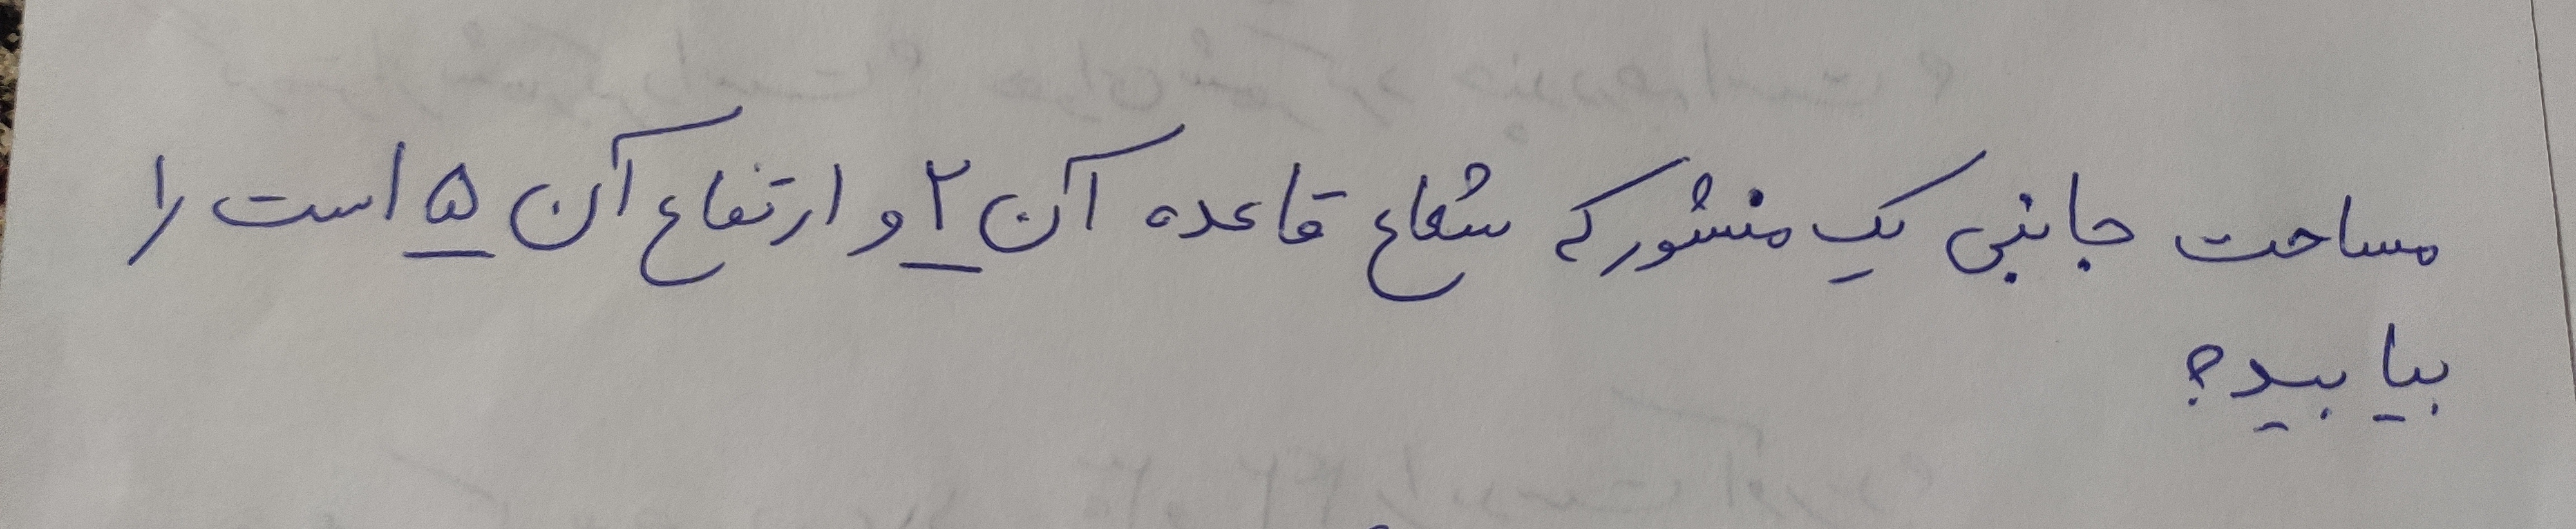 مساحت جانبی یک منشور که شعاع قاعده آن ۲ و ارتفاع آن ۵ است را
بیابید؟